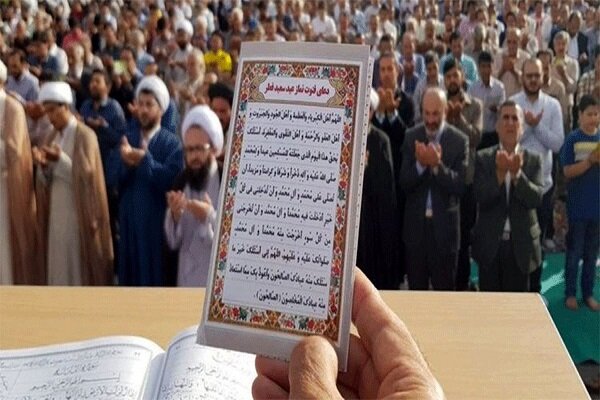 دعای قنوت نماز عید سعید فطر
اَللّهُمَّ اَهْلَ الْکِبْرِیاءِ وَ الْعَظَمَةِ وَ اَهْلَ الْجُودِ وَ الْجَبَرُوتِ وَ
اَهْلَ الْعَفْوِ وَ الرَّحْمَةِ وَ اَهْلَ التَّقْوی وَ الْمَغْفِرَةِ اَسْئَلُکَ
بِحَقِّ هذَا الْیَوْمِ الَّذی جَعَلْتَهُ لِلْمُسْلِمینَ عیداً وَ لِمُحَمَّدٍ
صَلَّی اللهُ عَلَیْهِ وَ آلِهِ ذُخْراً وَ شَرَفاً وَ کَرامَةً وَ مَزیداً اَنْ
تُصَلِّیَ عَلی مُحَمَّدٍ وَ آلِ مُحَمَّدٍ وَ اَنْ تُدْخِلَنی فی
خَیْرٍ اَدْخَلْتَ فیهِ مُحَمَّداً وَ آلَ مُحَمَّدٍ وَ اَنْ تُخْرِجَنی
مِنْ کُلِّ سُوءٍ اَخْرَجْتَ مِنْهُ مُحَمَّداً وَ آلَ مُحَمَّدٍ
صَلَواتُکَ عَلَیْهِ وَ عَلَیْهِمْ اَللّهُمَّ اِنّی اَسْئَلُکَ خَیْرَ ما
سَئَلَکَ مِنْهُ عِبادُکَ الصّالِحُونَ وَ اَعُوذُ بِکَ مِمَّا اسْتَعاذَ
مِنْهُ عِبادُکَ الْمُخْلِصُونَ (الصّالِحُونَ).